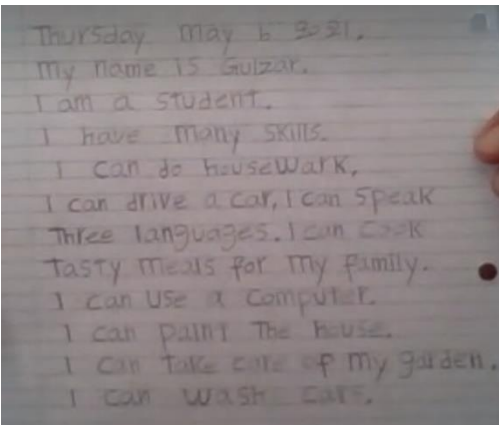 Thursday may 6 2021.
my name is Gulzar.
I am a student.
I have many skills.
I can do housewark,
I can drive a car, I can speak
Three languages. I can cook
Tasty meals for my family.
I can use a computer.
I can paint The house.
I can Take care of my garden.
I can wash cars.